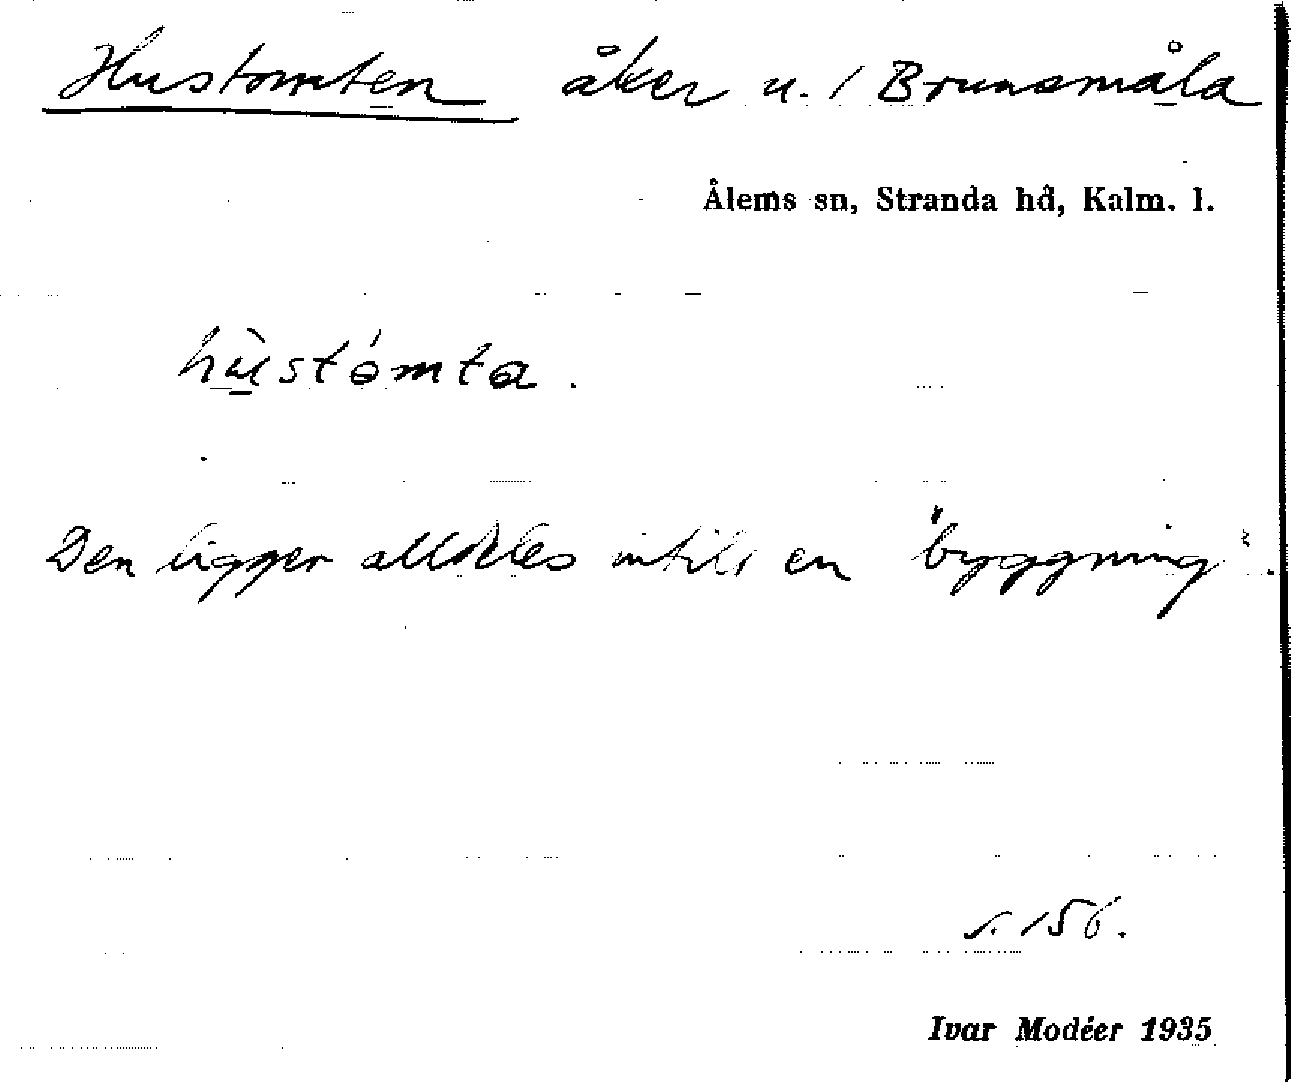 Hustomten åker u. / Brunsmåla
Ålems sn, Stranda hd, Kalm. l.
hùstómta.
Den ligger alldeles intill en "byggning".
s. 156.
Ivar Modéer 1935